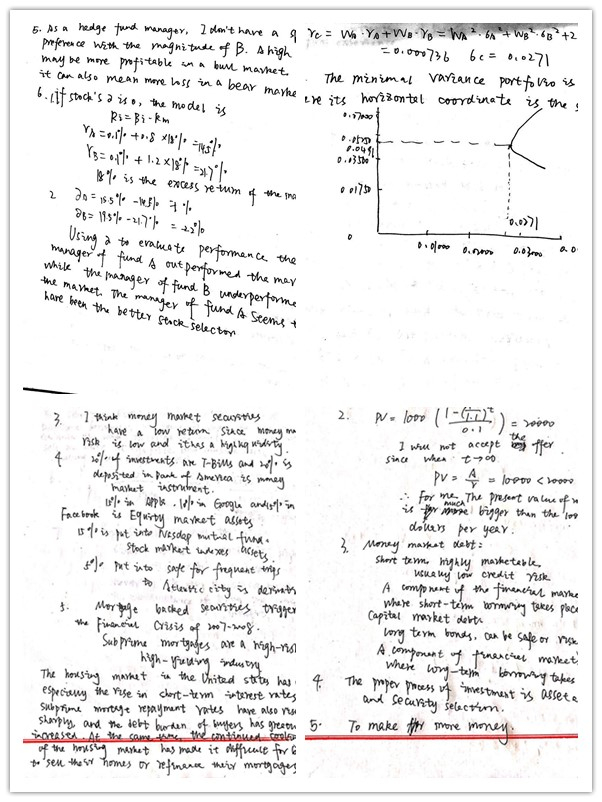 5. As a hedge fund manager, I don't have a
preference with the magnitude of B. A high
may be more profitable in a bull market.
it can also mean more loss in a bear marke
6. (1) If stock's a is 0, the model is
Ri = βi - Rm
rA = 0.1% + 0.8 × 18% = 14.5%
rB = 0.1% + 1.2 × 18% = 21.7%
18% is the excess return of the ma
2 = 15.5% - 14.5% = 1%
= 19.5% - 21.7% = -2.2%
Using a to evaluate performance, the
manager of fund A outperformed the mar
while the manager of fund B underperforme
the market. The manager of fund A seems
have been the better stock selector
rc = WA · rA + WB · rB = WA² · 6A² + WB² · 6B² + 2
= 0.000736 6c = 0.0271
The minimal variance portfolio is
re its horizontal coordinate is the s
0.07000
0.05250
0.0491
0.03500
0.01750
0
0.0271
0.01000 0.02000 0.03000 0.0
3. I think money market securities
have a low return. Since money ma
risk is low and it has a high liquidity.
4 20% of investments are T-Bills and 20% is
deposited in Bank of America is money
market instrument.
15% in Apple. 10% in Google and 15% in
Facebook is Equity market assets.
15% is put into Nasdap mutial fund.
stock market indexes assets.
5% put into safe for frequent trips
to Atlantic city is derivati
5. Mortgage backed securities trigger
the Financial Crisis of 2007-2008.
Subprime mortgages are a high-risk
high-yielding industry
The housing market in the United states has
especially the rise in short-term interest rates
subprime mortage repayment rates have also rise
sharply, and the debt burden of buyers has great
increased. At the same time, the continued cooli
of the housing market has made it difficult for b
to sell their homes or refinance their mortgages
2. PV = 1000 (1-(1/1.1)^t / 0.1) = 20000
I will not accept the offer
since when t→∞.
PV = A/r = 10000 < 20000
∴ For me, The present value of
is much bigger than the 100
dollars per year.
3. Money market debt:
short term, highly marketable,
usually low credit risk
A component of the financial marke
where short-term borrowing takes place
Capital market debt.
long term bonds, can be safe or risk
A component of financial market
where long-term borrowing takes
4. The proper process of investment is asset a
and security selection.
5. To make more money.